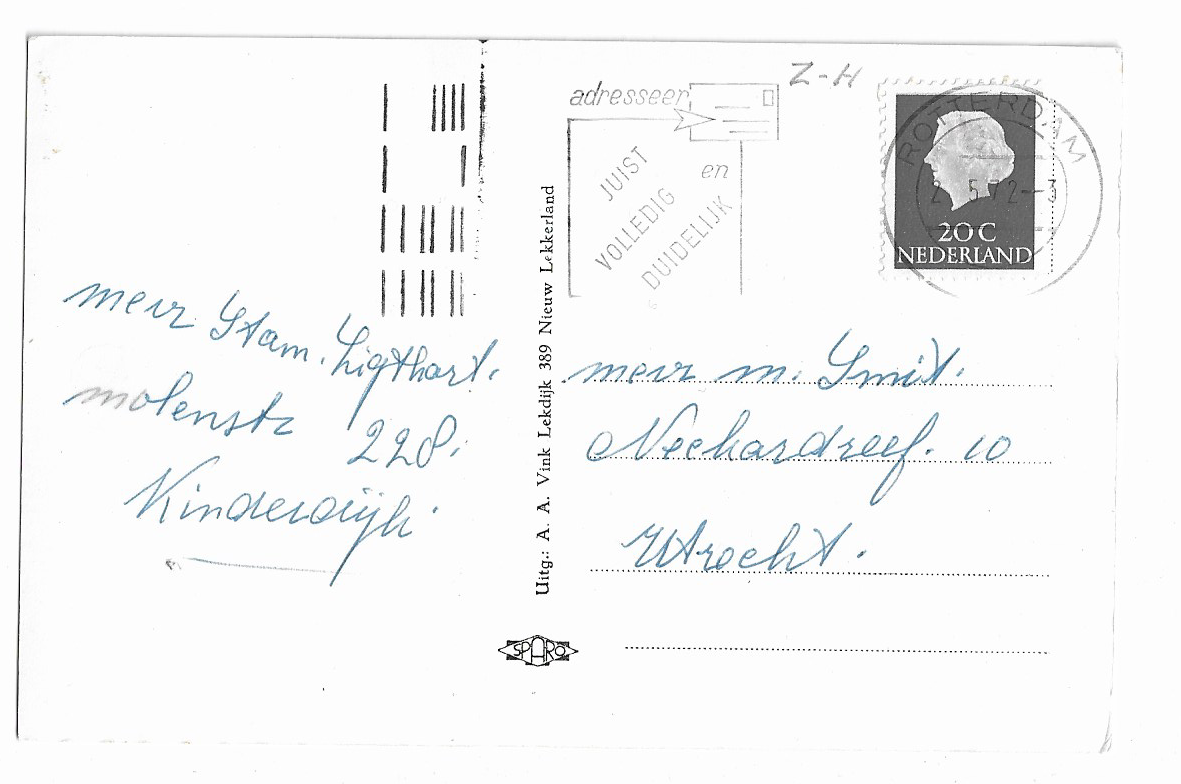 Z-H
adresseer
JUIST
en
VOLLEDIG
DUIDELIJK
ROTTERDAM
5 72-3
20 C
NEDERLAND
mevr. Stam. Ligthart.
molenstr 228.
Kinderdijk
Uitg.: A. A. Vink Lekdijk 389 Nieuw Lekkerland
SPARO
mevr m. Smit.
Neckardreef. 10
Utrecht.